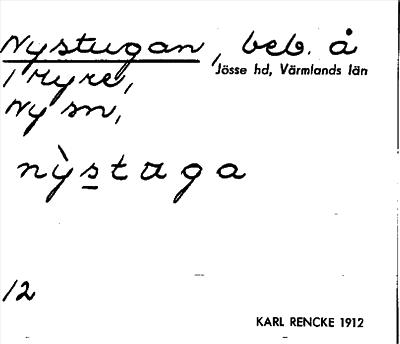 Nystugan, beb. å
Jösse hd, Värmlands län
1 Ryre,
Ny sn,
nỳstuga
12
KARL RENCKE 1912